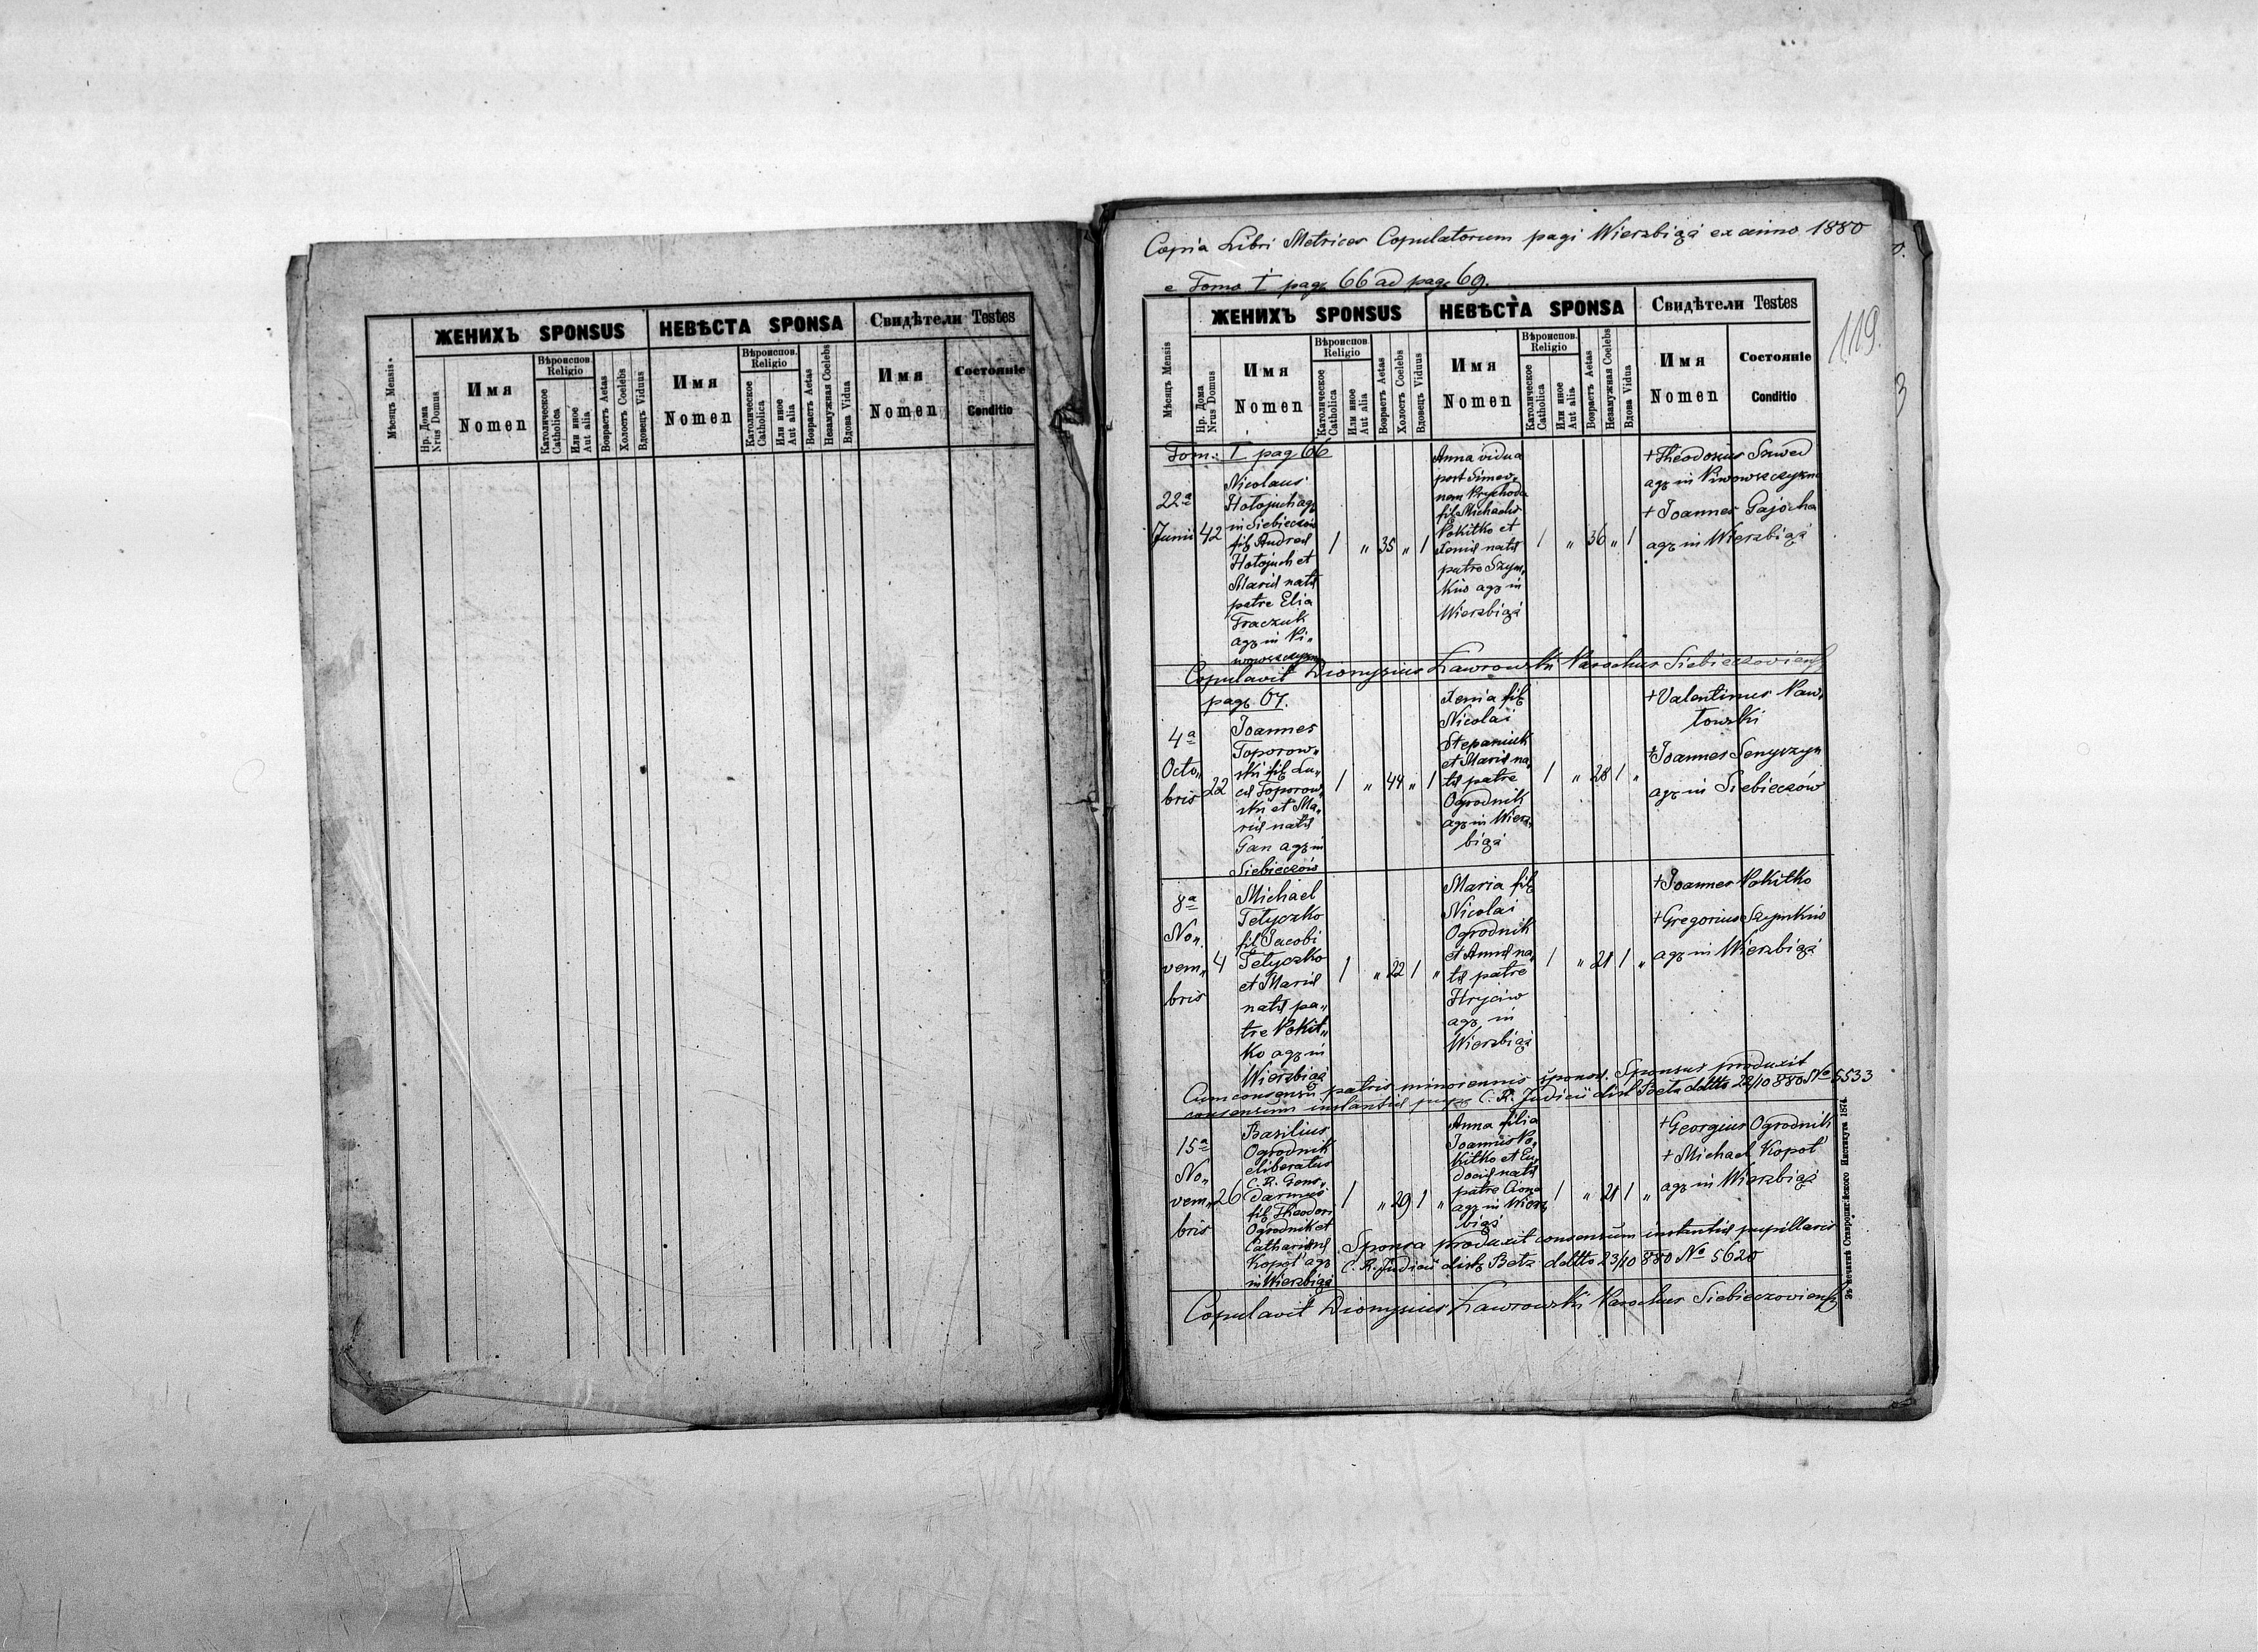 Мѣсяцъ Mensis.
ЖЕНИХЪ SPONSUS
НЕВѢСТА SPONSA
Свидѣтели Testes
Нр. Дома
Nrus Domus
Имя
Nomen
Вѣроиспов.
Religio
Католическое
Catholica
Или иное
Aut alia
Возрастъ Aetas
Холостъ Coelebs
Вдовецъ Viduus
Имя
Nomen
Вѣроиспов.
Religio
Католическое
Catholica
Или иное
Aut alia
Возрастъ Aetas
Незамужная Coelebs
Вдова Vidua
Имя
Nomen
Состояніе
Conditio
Copia Libri Metrices Copulatorum pagi Wierzbiąż ex anno 1880
e Tomo I pag. 66 ad pag. 69.
119.
3
Мѣсяцъ Mensis
ЖЕНИХЪ SPONSUS
НЕВѢСТА SPONSA
Свидѣтели Testes
Нр. Дома
Nrus Domus
Имя
Nomen
Вѣроиспов.
Religio
Католическое
Catholica
Или иное
Aut alia
Возрастъ Aetas
Холостъ Coelebs
Вдовецъ Viduus
Имя
Nomen
Вѣроиспов.
Religio
Католическое
Catholica
Или иное
Aut alia
Возрастъ Aetas
Незамужная Coelebs
Вдова Vidua
Имя
Nomen
Состояніе
Conditio
Tom: I pag 66
22a
Junii
42
Nicolaus
Hołojuch agr
in Siebieczów
fil Andreæ
Hołojuch et
Mariæ natæ
patre Elia
Traczuk
agr in Pi„
wowszczyzna
1 „ 35 „ 1
Anna vidua
post Simeo„
nem Prychoda
fil Michaelis
Pokitko et
Xeniæ natæ
patre Szym„
kiw agr in
Wierzbiąż
1 „ 36 „ 1
+ Theodosius Szwed
agr in Piwowszczyzna
+ Joannes Gajocha
agr in Wierzbiąż
Copulavit Dionysius Ławrowski Parochus Siebieczoviens
pag. 67.
4a
Octo„
bris
22
Joannes
Toporow„
ski fil Lu„
cæ Toporow„
ski et Ma„
riæ natæ
Gan agr in
Siebieczów
1 „ 44 „ 1
Xenia fil
Nicolai
Stepaniuk
et Mariæ na„
tæ patre
Ogrodnik
agr in Wierz„
biąż
1 „ 28 1 „
+ Valentinus Paw„
łowski
+ Joannes Senyszyn
agr in Siebieczów
8a
No„
vem„
bris
4
Michael
Tetyczko
fil Jacobi
Tetyczko
et Mariæ
natæ pa„
tre Pokit„
ko agr in
Wierzbiąż
1 „ 22 1 „
Maria fil
Nicolai
Ogrodnik
et Annæ na„
tæ patre
Hryciw
agr in
Wierzbiąż
1 „ 21 1 „
+ Joannes Pokitko
+ Gregorius Szymkiw
agr in Wierzbiąż
Cum consensu patris minorennis sponsæ. Sponsus produxit
consensum instantiæ pup C. R. Judicii dist Bełz ddtto 22/10 880 No 5533
15a
No„
vem„
bris
26
Basilius
Ogrodnik
eliberatus
C. R. Gens„
darmus
fil Theodori
Ogrodnik et
Catharinæ
Kopot agr
in Wierzbiąż
1 „ 29 1 „
Anna filia
Joannis Po„
kitko et Eu„
dociæ natæ
patre
agr in Wierz
biąż
1 „ 21 1 „
+ Georgius Ogrodnik
+ Michael Kopot
agr in Wierzbiąż
Sponsa produxit consensum instantiæ pupillaris
C. R. Judicii dist Bełz ddtto 23/10 880 No 5620
Copulavit Dionysius Ławrowski Parochus Siebieczoviens
Ставропигійского Института 1874.